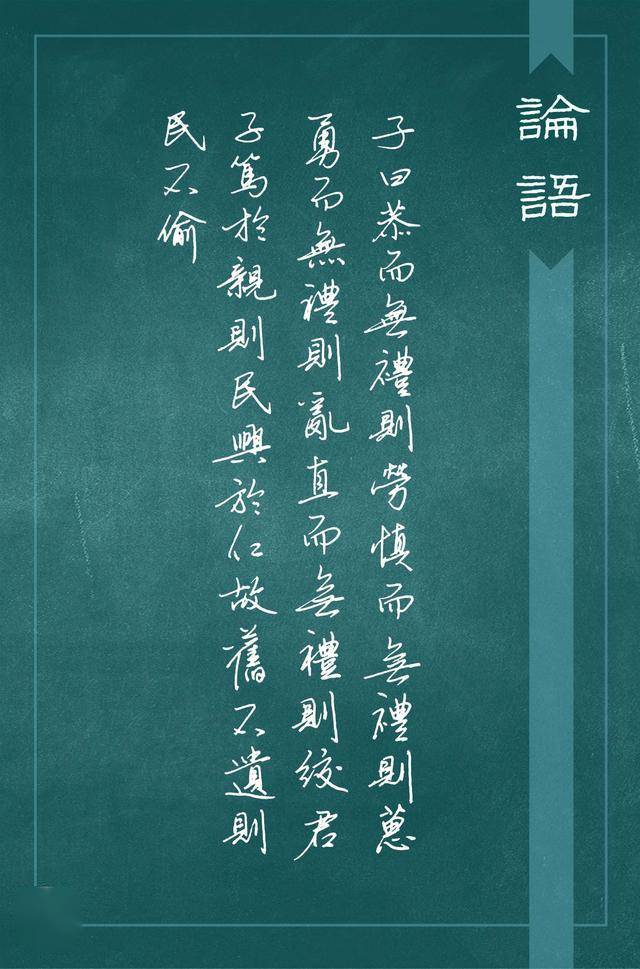 論語
子曰恭而無禮則勞慎而無禮則蔥
勇而無禮則亂直而無禮則絞君
子篤於親則民興於仁故舊不遺則
民不偷